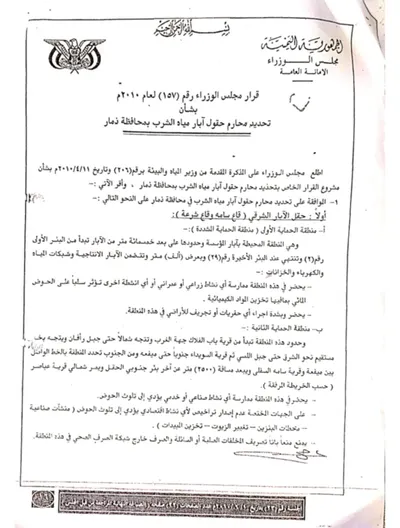 بسم الله الرحمن الرحيم
الجمهورية اليمنية
مجلس الوزراء
الامانة العامة
قرار مجلس الوزراء رقم (١٥٧) لعام ٢٠١٠م
بشأن
تحديد محارم حقول آبار مياه الشرب بمحافظة ذمار
اطلع مجلس الوزراء على المذكرة المقدمة من وزير المياه والبيئة برقم(٢٠٦) وتاريخ ٢٠١٠/٤/١١م بشأن
مشروع القرار الخاص بتحديد محارم حقول آبار مياه الشرب بمحافظة ذمار ، وأقر الآتي :-
١- الموافقة على تحديد محارم حقول آبار مياه الشرب في محافظة ذمار على النحو التالي :-
أولاً : حقل الآبار الشرقي ( قاع سامه وقاع شرعة ) :-
أ- منطقة الحماية الأولى ( منطقة الحماية الشديدة ) :-
وهي المنطقة المحيطة بآبار المؤسسة وحدودها على بعد خمسمائة متر من الآبار تبدأ من البئر الأولى
رقم (٢) وتنتهي عند البئر الأخيرة رقم(٢٩) وبعرض (ألف) متر وتتضمن الآبار الانتاجية وشبكات المياه
والكهرباء والخزانات :-
- يحضر في هذه المنطقة ممارسة أي نشاط زراعي أو عمراني أو أي انشطة اخرى تؤثر سلباً على الحوض
المائي بمافيها تخزين المواد الكيميائية .
- يحضر وبشدة اجراء أي حفريات أو تجريف للأراضي في هذه المنطقة.
ب- منطقة الحماية الثانية :-
وحدود هذه المنطقة تبدأ من قرية باب الفلاك جهة الغرب وتتجه شمالاً حتى جبل رأفان ويتجه بخ
مستقيم نحو الشرق حتى جبل اللسي ثم قرية السويداء جنوباً حتى ميفعه ومن الجنوب تحدد المنطقة بالخط الواصل
بين ميفعة وقرية سامه السفلى ويبعد مسافة (٢٥٠٠) متر عن آخر بئر جنوبي الحقل ويمر شمالي قرية عياصر
( حسب الخريطة المرفقة ).
- يحضر في هذه المنطقة ممارسة أي نشاط صناعي أو خدمي يؤدي إلى تلوث الحوض.
- على الجهات المختصة عدم إصدار تراخيص لأي نشاط اقتصادي يؤدي إلى تلوث الحوض ( منشآت صناعية
- محطات البنزين - تغيير الزيوت - تخزين المبيدات ).
- يمنع منعاً باتاً تصريف المخلفات الصلبة أو السائلة والصرف خارج شبكة الصرف الصحي في هذه المنطقة.